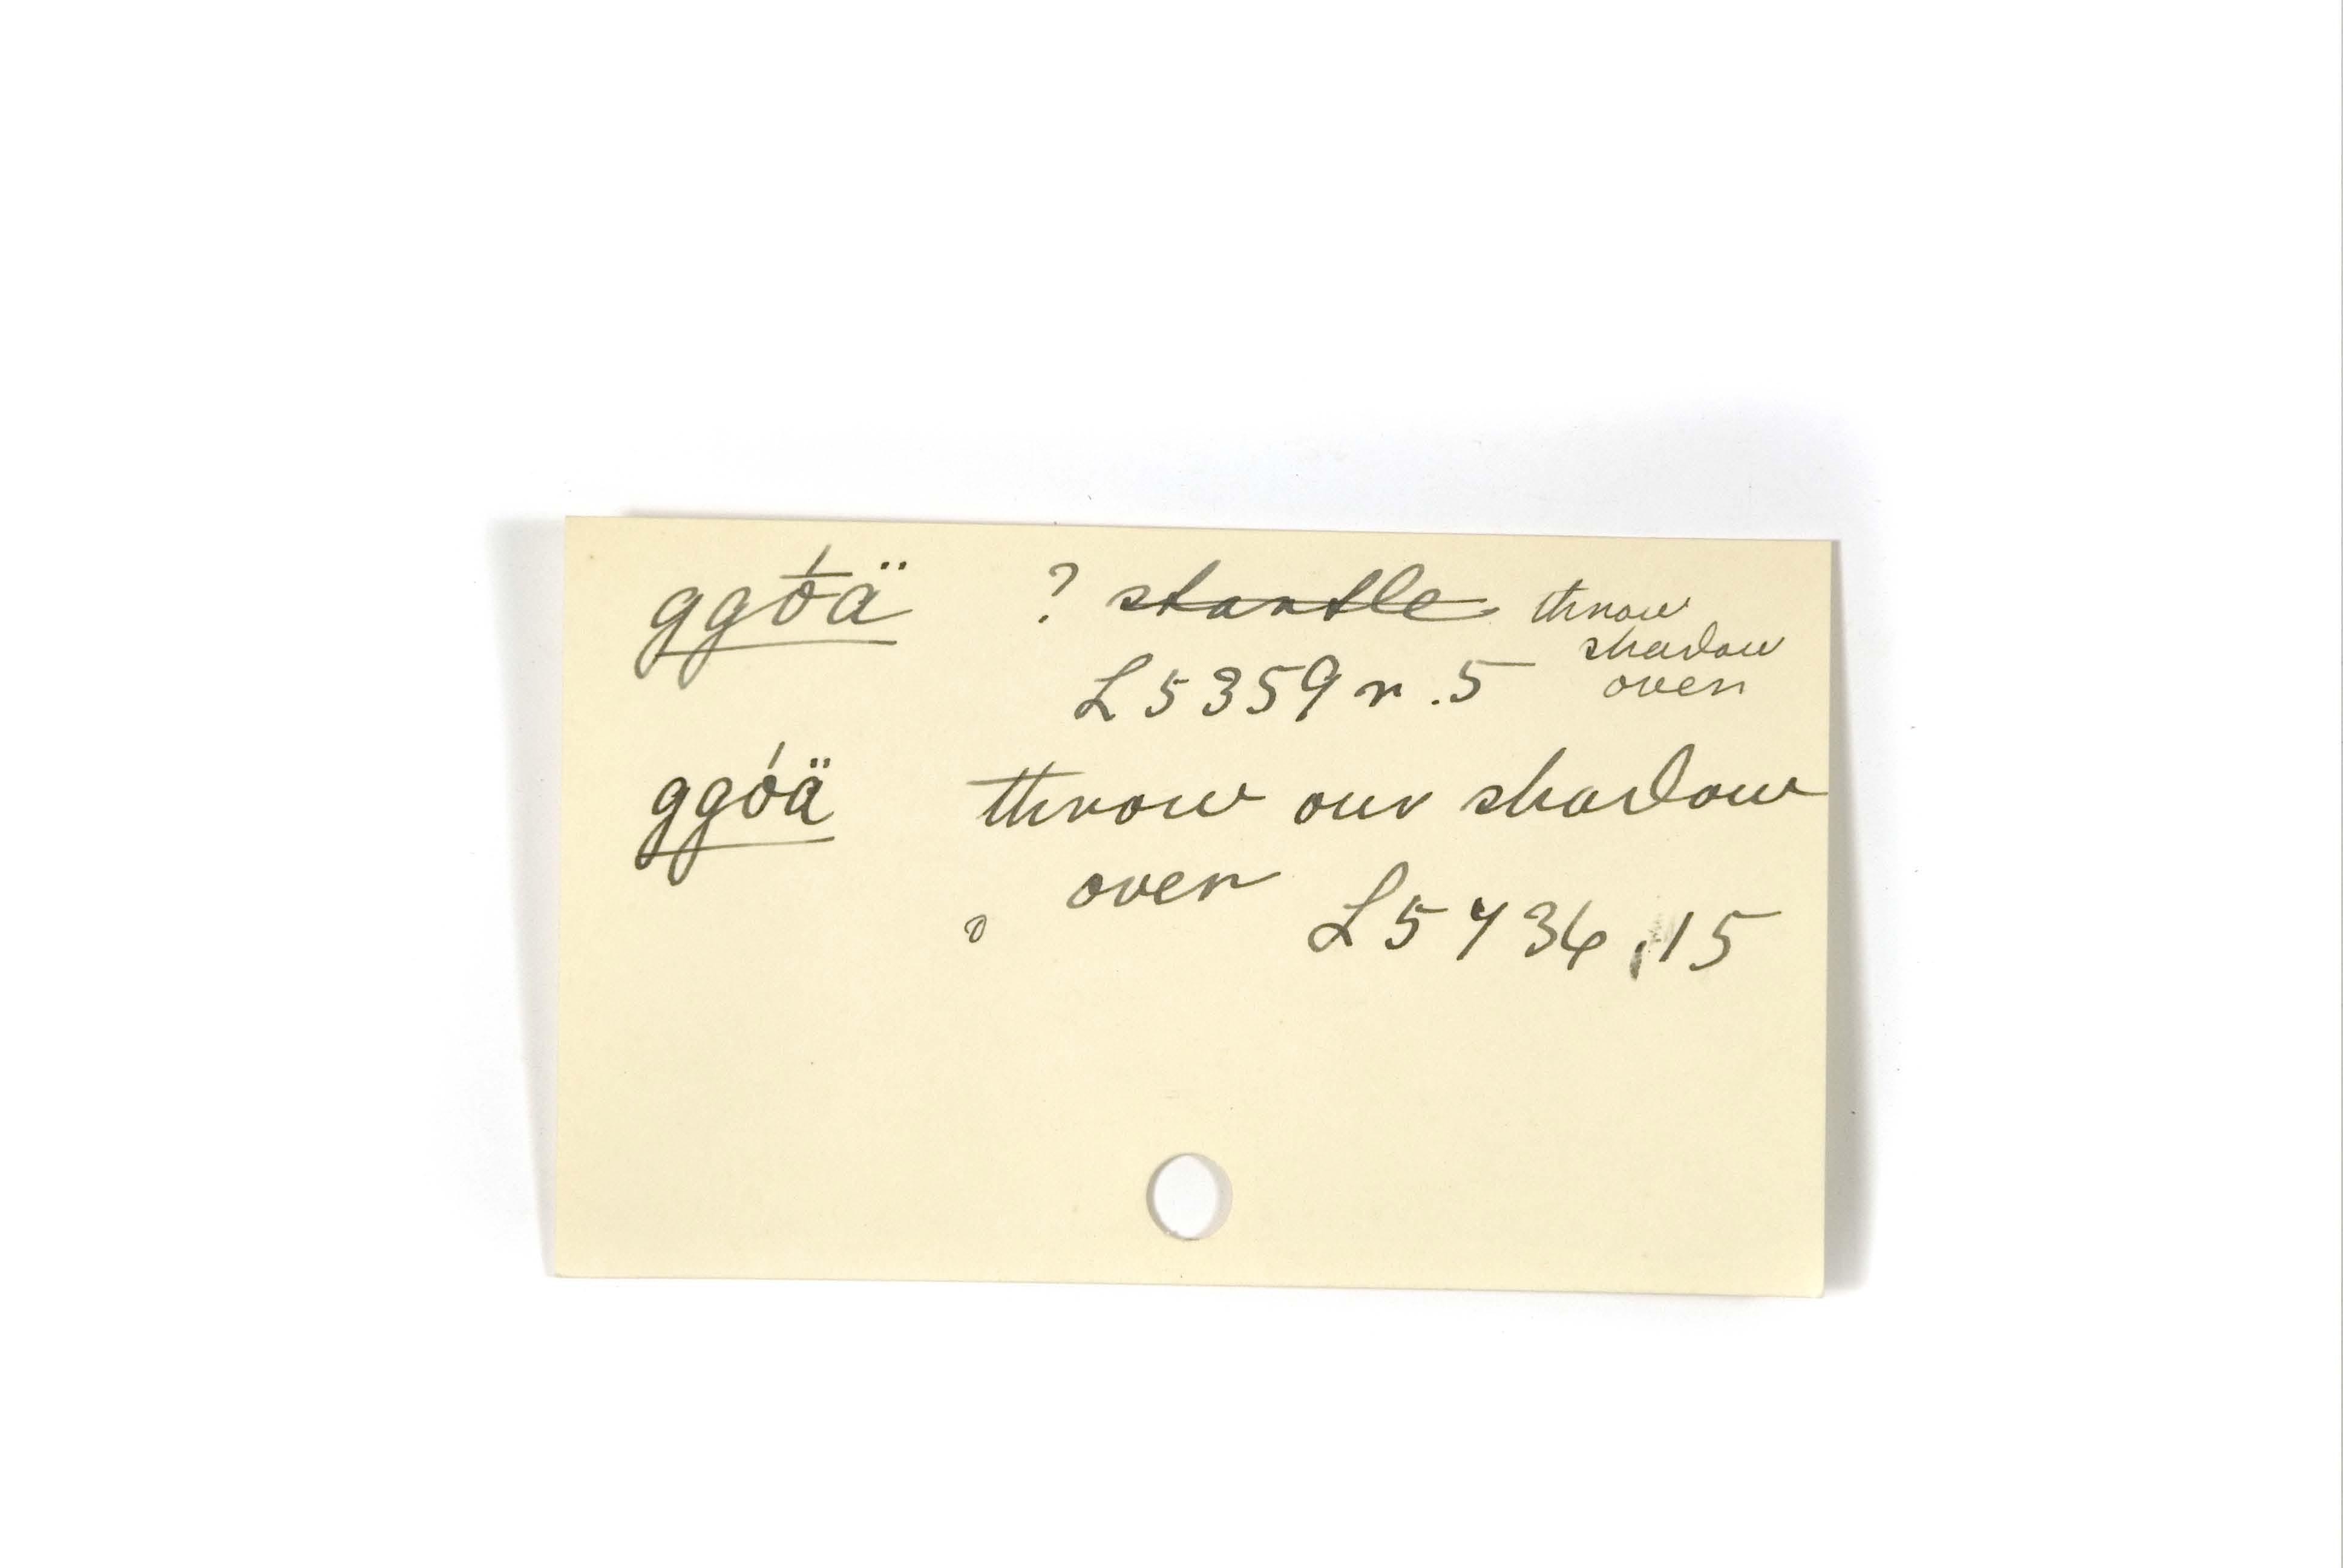 ggṓä ? startle throw
shadow
over
L5359r.5
ggóä throw our shadow
over L5436,15